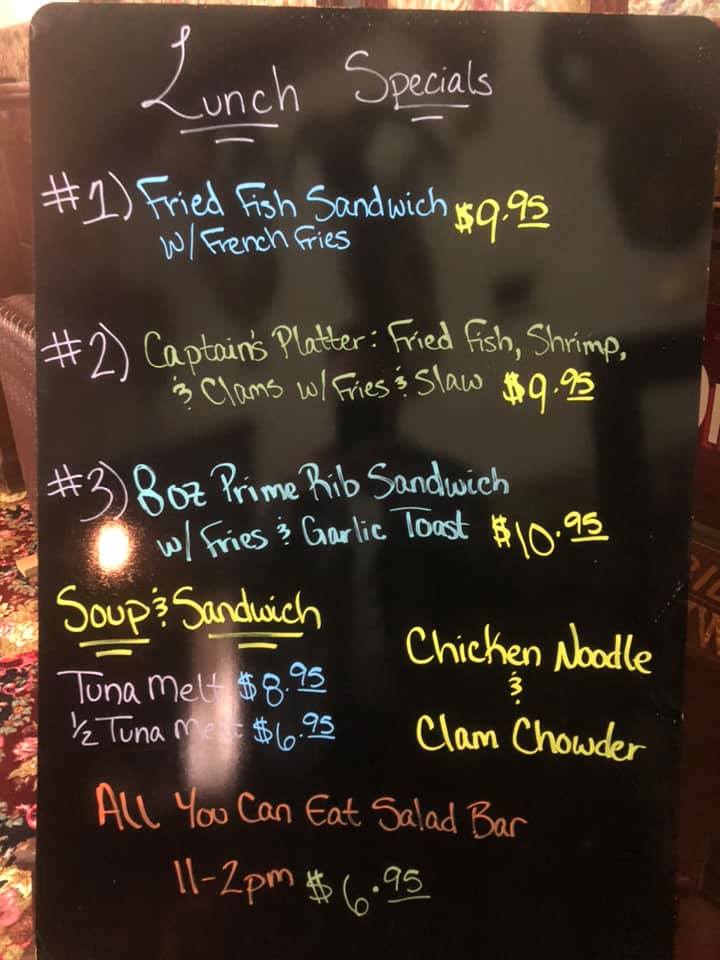 Lunch Specials
#1) Fried Fish Sandwich $9.95
w/ French Fries
#2) Captain's Platter: Fried Fish, Shrimp,
& Clams w/ Fries & Slaw $9.95
#3) 8oz Prime Rib Sandwich
w/ Fries & Garlic Toast $10.95
Soup & Sandwich
Tuna Melt $8.95
1/2 Tuna Melt $6.95
Chicken Noodle
&
Clam Chowder
All You Can Eat Salad Bar
11-2pm $6.95